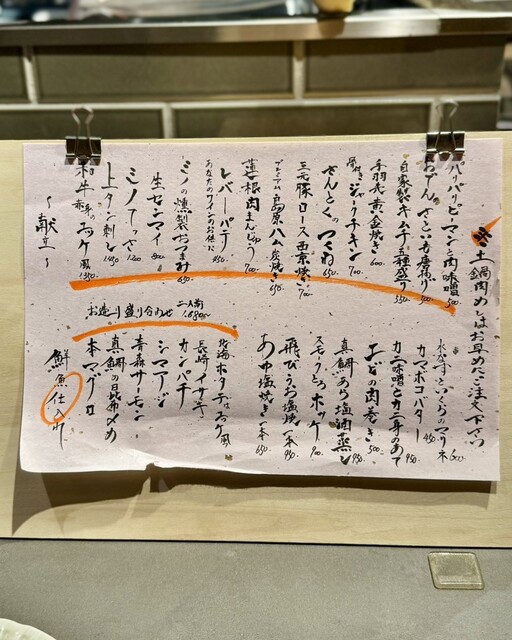 土鍋肉めしはお早めにご注文下さい
パリパリピーマンと肉味噌 500
手羽先黄金焼き 600
自家製キムチ五種盛り 550
骨付きジャークチキン 700
さんとくのつくね 650
三元豚ロース西京焼き 700
プレミアム島原ハム炭焼き 650
蓮根肉まんじゅう 700
レバーパテ 850
あなたのワインのお供に
ミノの燻製おつまみ 650
生センマイ 800
ミノてっさ 1,200
上タン刺し 1,450
和牛赤身のユッケ風 1,300
〜献立〜
水なすといくらのマリネ 600
カマボコバター 450
カニ味噌とカニ身のあて 950
エビの肉巻き 500
真鯛あら塩酒蒸し 950
スモークとろホッケ 900
飛びうお塩焼一本 950
あゆ塩焼き一本 650
お造り盛り合わせ 二人前 1,680〜
北海ホタテユッケ風
長崎イサキ
カンパチ
シマアジ
青森サーモン
真鯛の昆布〆め
本マグロ
鮮魚仕入れ